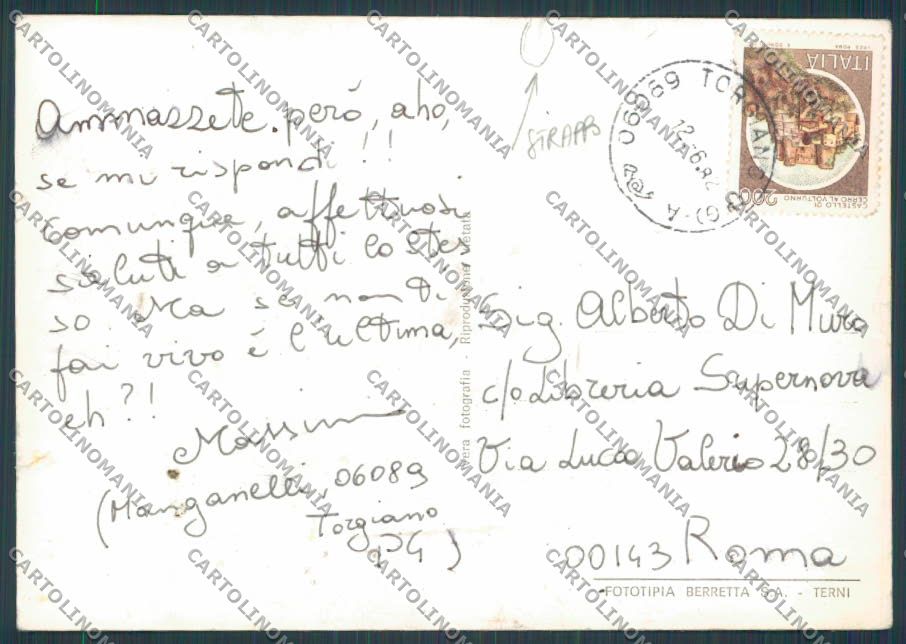 Ammazzete però, aho,
se mi rispondi!!
Comunque, affettuosi
saluti a tutti lo stes
so. Ma se non ti
fai vivo é l'ultima,
eh?!
Massimo
(Manganelli, 06089
Torgiano
PG)
STRAPPO
06089 TORGIANO (PG) - A
12.-6.82
ITALIA
200
CASTELLO DI
CERRO AL VOLTURNO
vera fotografia - Riproduzione vietata
Sig. Alberto Di Muro
c/o Libreria Supernova
Via Lucio Valerio 28/30
00143 Roma
FOTOTIPIA BERRETTA S.A. - TERNI
CARTOLINOMANIA